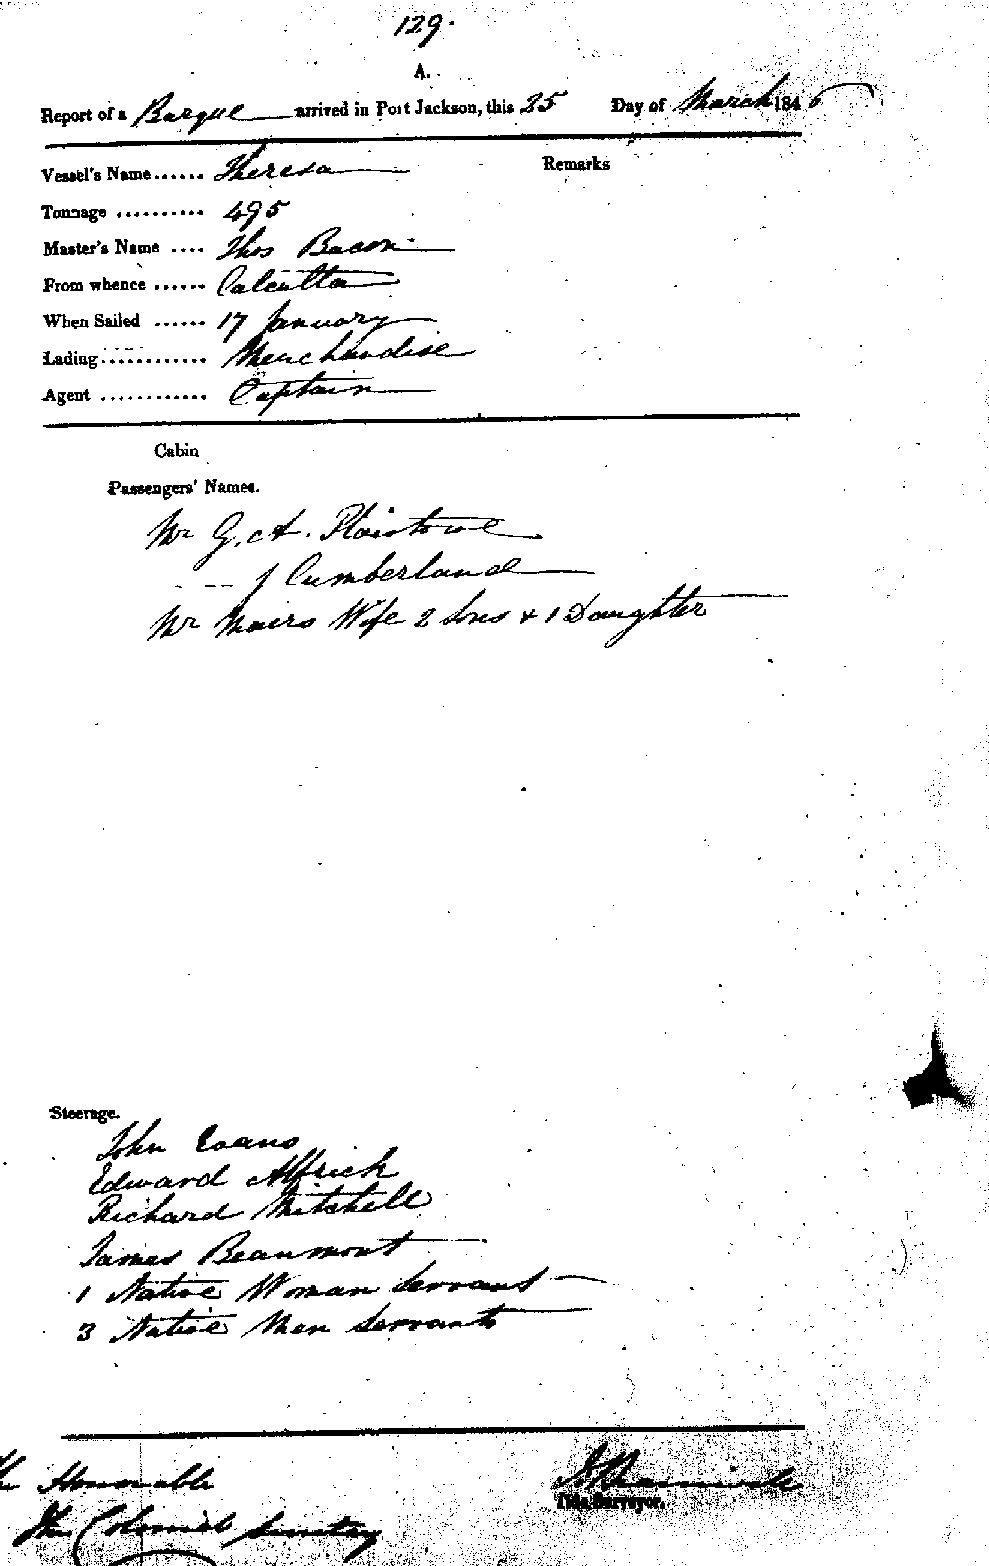 129.
A.
Report of a Barque arrived in Port Jackson, this 25 Day of March 1846
Remarks
Vessel's Name...... Theresa
Tonnage .......... 495
Master's Name .... Thos Bacon
From whence ...... Calcutta
When Sailed ...... 17 January
Lading............ Merchandise
Agent ............ Captain
Cabin
Passengers' Names.
Mr G. A. Plaistowe
J Cumberland
Mr Mairs Wife 2 Sons + 1 Daughter
Steerage.
John Evans
Edward Alfrich
Richard Mitchell
James Beaumont
1 Native Woman Servant
3 Native Men Servants
The Honorable
The Colonial Secretary
Tide Surveyor.